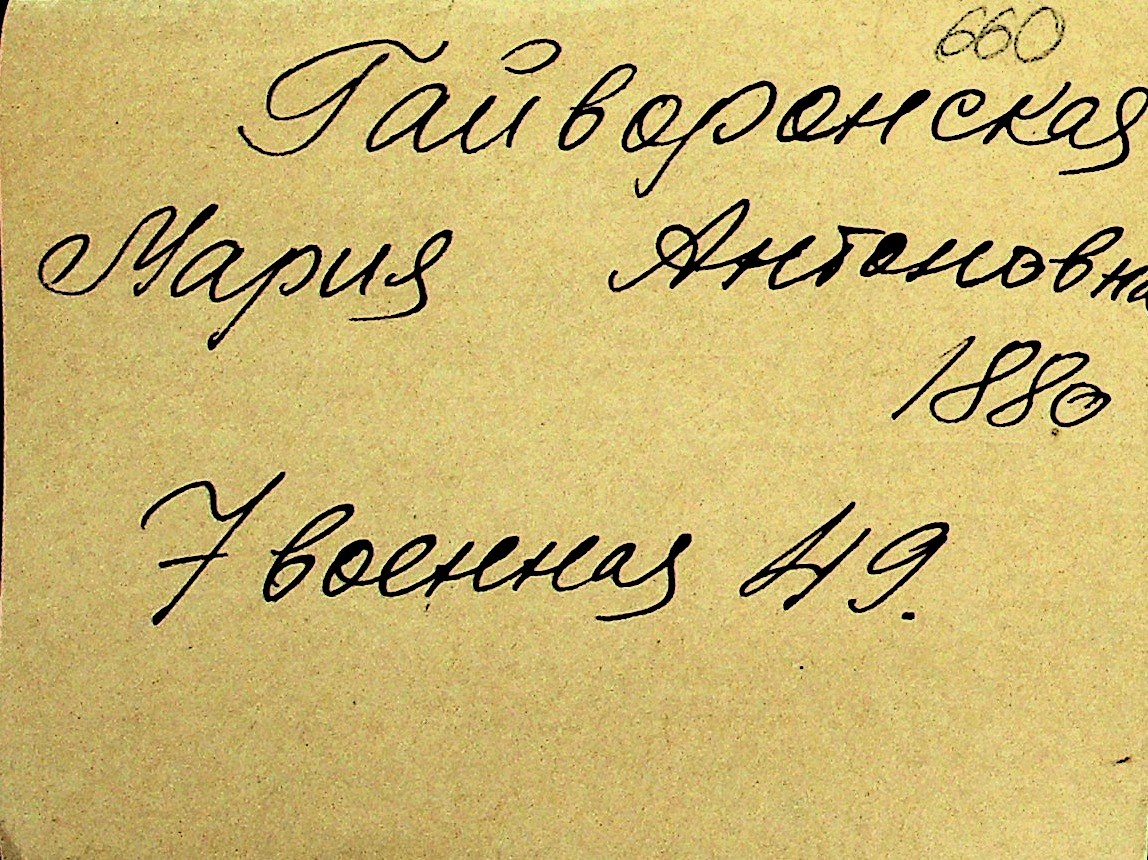 660
Гайворонская
Мария Антоновна
1880
7 военная 49.